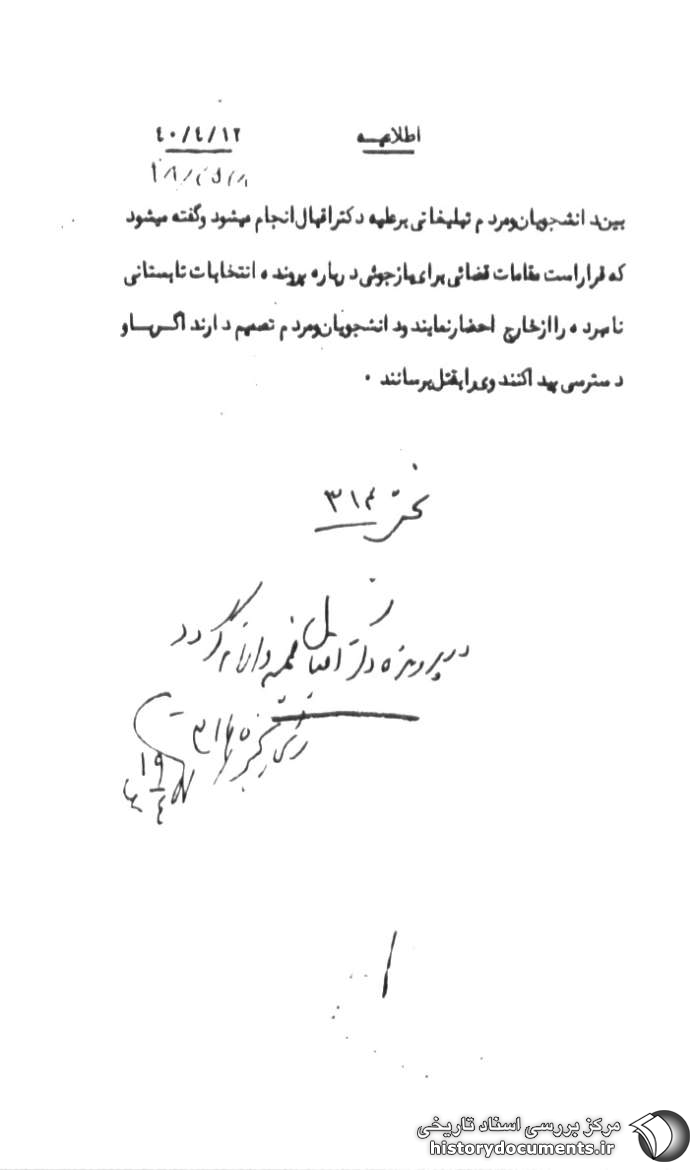 اطلاعیه
۴۰/۴/۱۲
بین دانشجویان و مردم تبلیغاتی بر علیه دکتر اقبال انجام میشود و گفته میشود
که قرار است مقامات قضائی برای بازجوئی درباره پرونده انتخابات تابستانی
نامبرده را از خارج احضار نمایند و دانشجویان و مردم تصمیم دارند اگر به او
دسترسی پیدا کنند وی را بقتل برسانند .
۳۱۴
در پرونده دکتر اقبال ضمیمه و گردد
۱۹
۴
مرکز بررسی اسناد تاریخی
historydocuments.ir